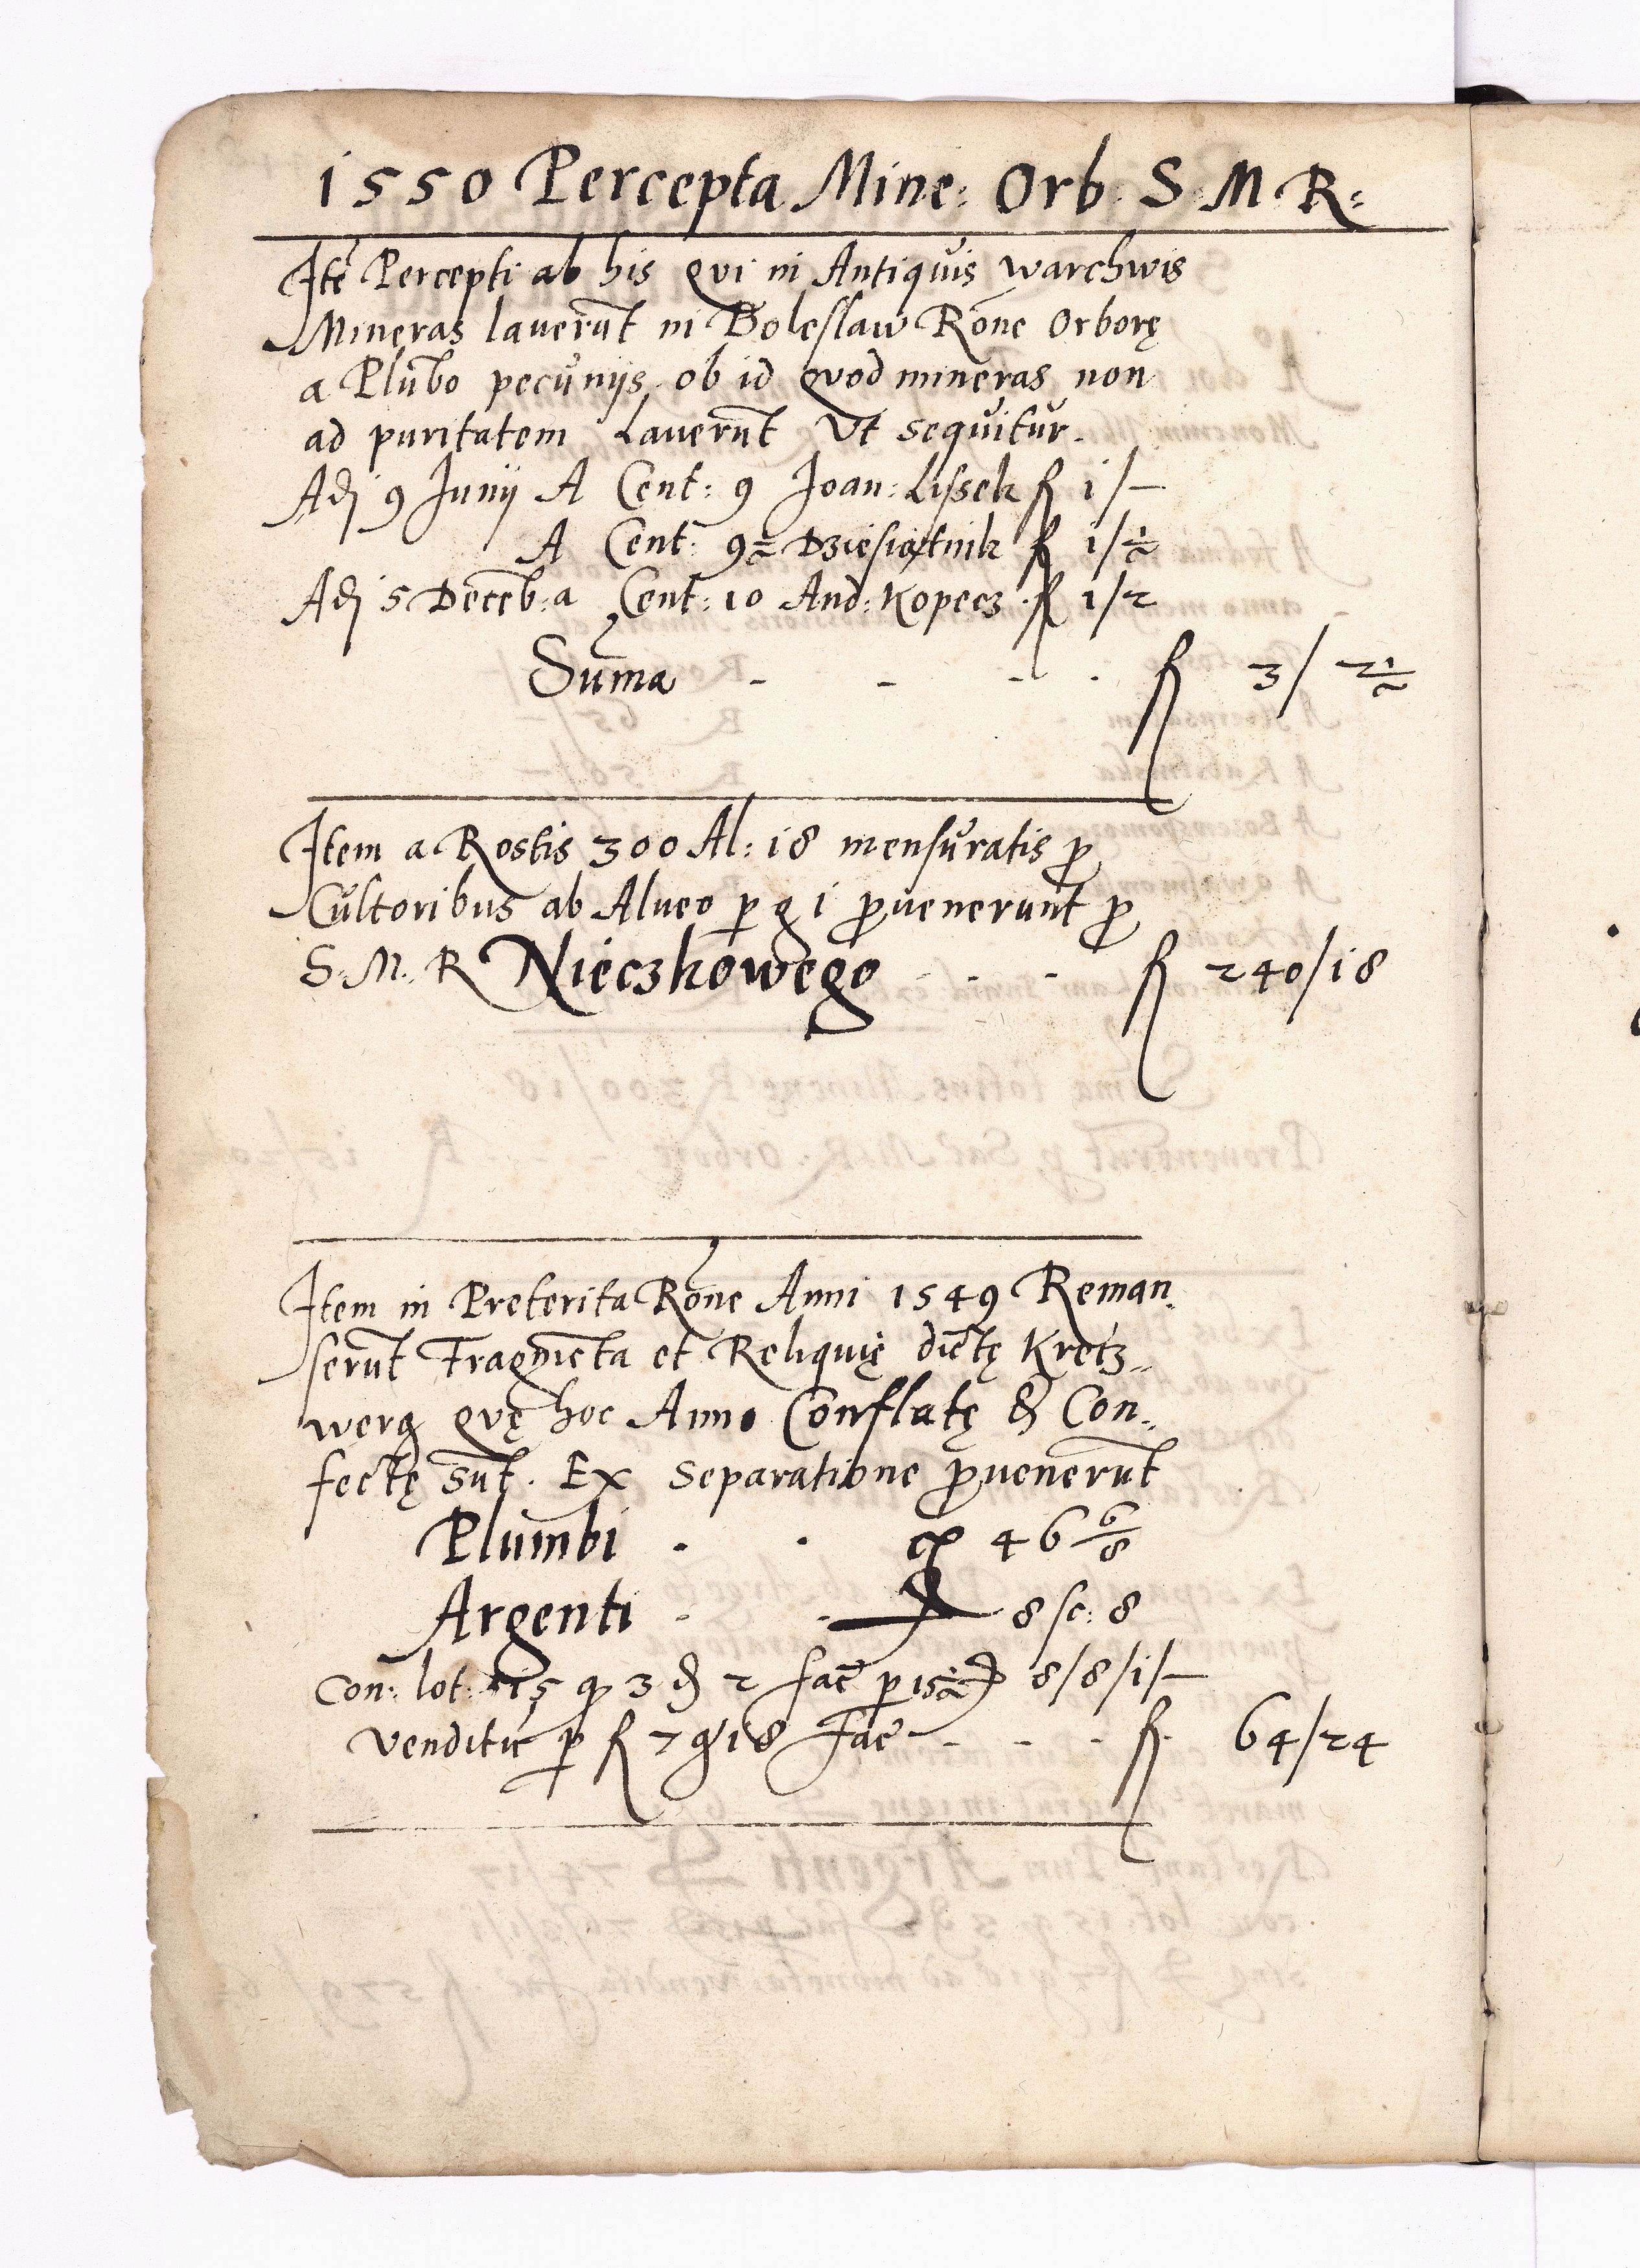 1550 Percepta Mine: Orb: S: M: R:
Itē Percepti ab his qvi in Antiqvis warchwis
Mineras lauerūt in Boleslaw Rōne Orborę
a Plūbo pecunijs ob id qvod mineras non
ad puritatem Lauerūt Vt sequitur.
Adj 9 Junij A Cent: 9 Joan: Lissek fl 1/—
A Cent: 9½ Dziesiątnik fl 1/½
Adj 5 Decēb: a Cent: 10 And: Kopecz fl 1/2
Suma - - - . fl 3/2½
Item a Rostis 300 Al: 18 mensuratis p
Cultoribus ab Alueo p g 1 puenerunt p
S: M: R Nieczkowego - - - fl 240/18
Item in Preterita Rōne Anni 1549 Reman
serūt Fragmēta et Reliquię dictę Kretz
werg qvę hoc Anno Conflatę & Con
fectę sūt. Ex Separatione puenerūt
Plumbi . . 46 6/8
Argenti - . 8 sc: 8
Con: lot: 15 q 3 d 2 facē p 15½ 8/8/1/—
venditū p fl 7 g 18 facē - - - fl 64/24